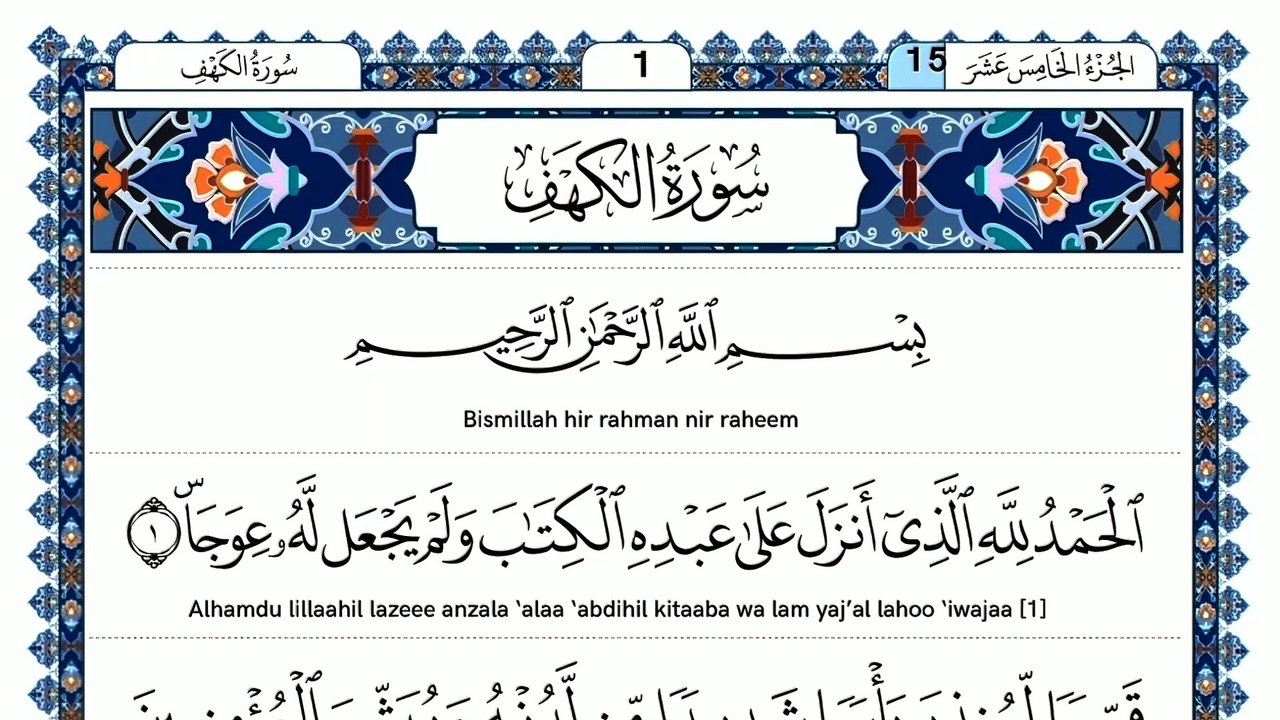 سُورَةُ الكَهْفِ
1
15 الجُزْءُ الخَامِسَ عَشَرَ
سُورَةُ الكَهْفِ
بِسْمِ ٱللَّهِ ٱلرَّحْمَٰنِ ٱلرَّحِيمِ
Bismillah hir rahman nir raheem
ٱلْحَمْدُ لِلَّهِ ٱلَّذِىٓ أَنزَلَ عَلَىٰ عَبْدِهِ ٱلْكِتَٰبَ وَلَمْ يَجْعَل لَّهُۥ عِوَجَاۜ ١
Alhamdu lillaahil lazeee anzala ‘alaa ‘abdihil kitaaba wa lam yaj’al lahoo ‘iwajaa [1]